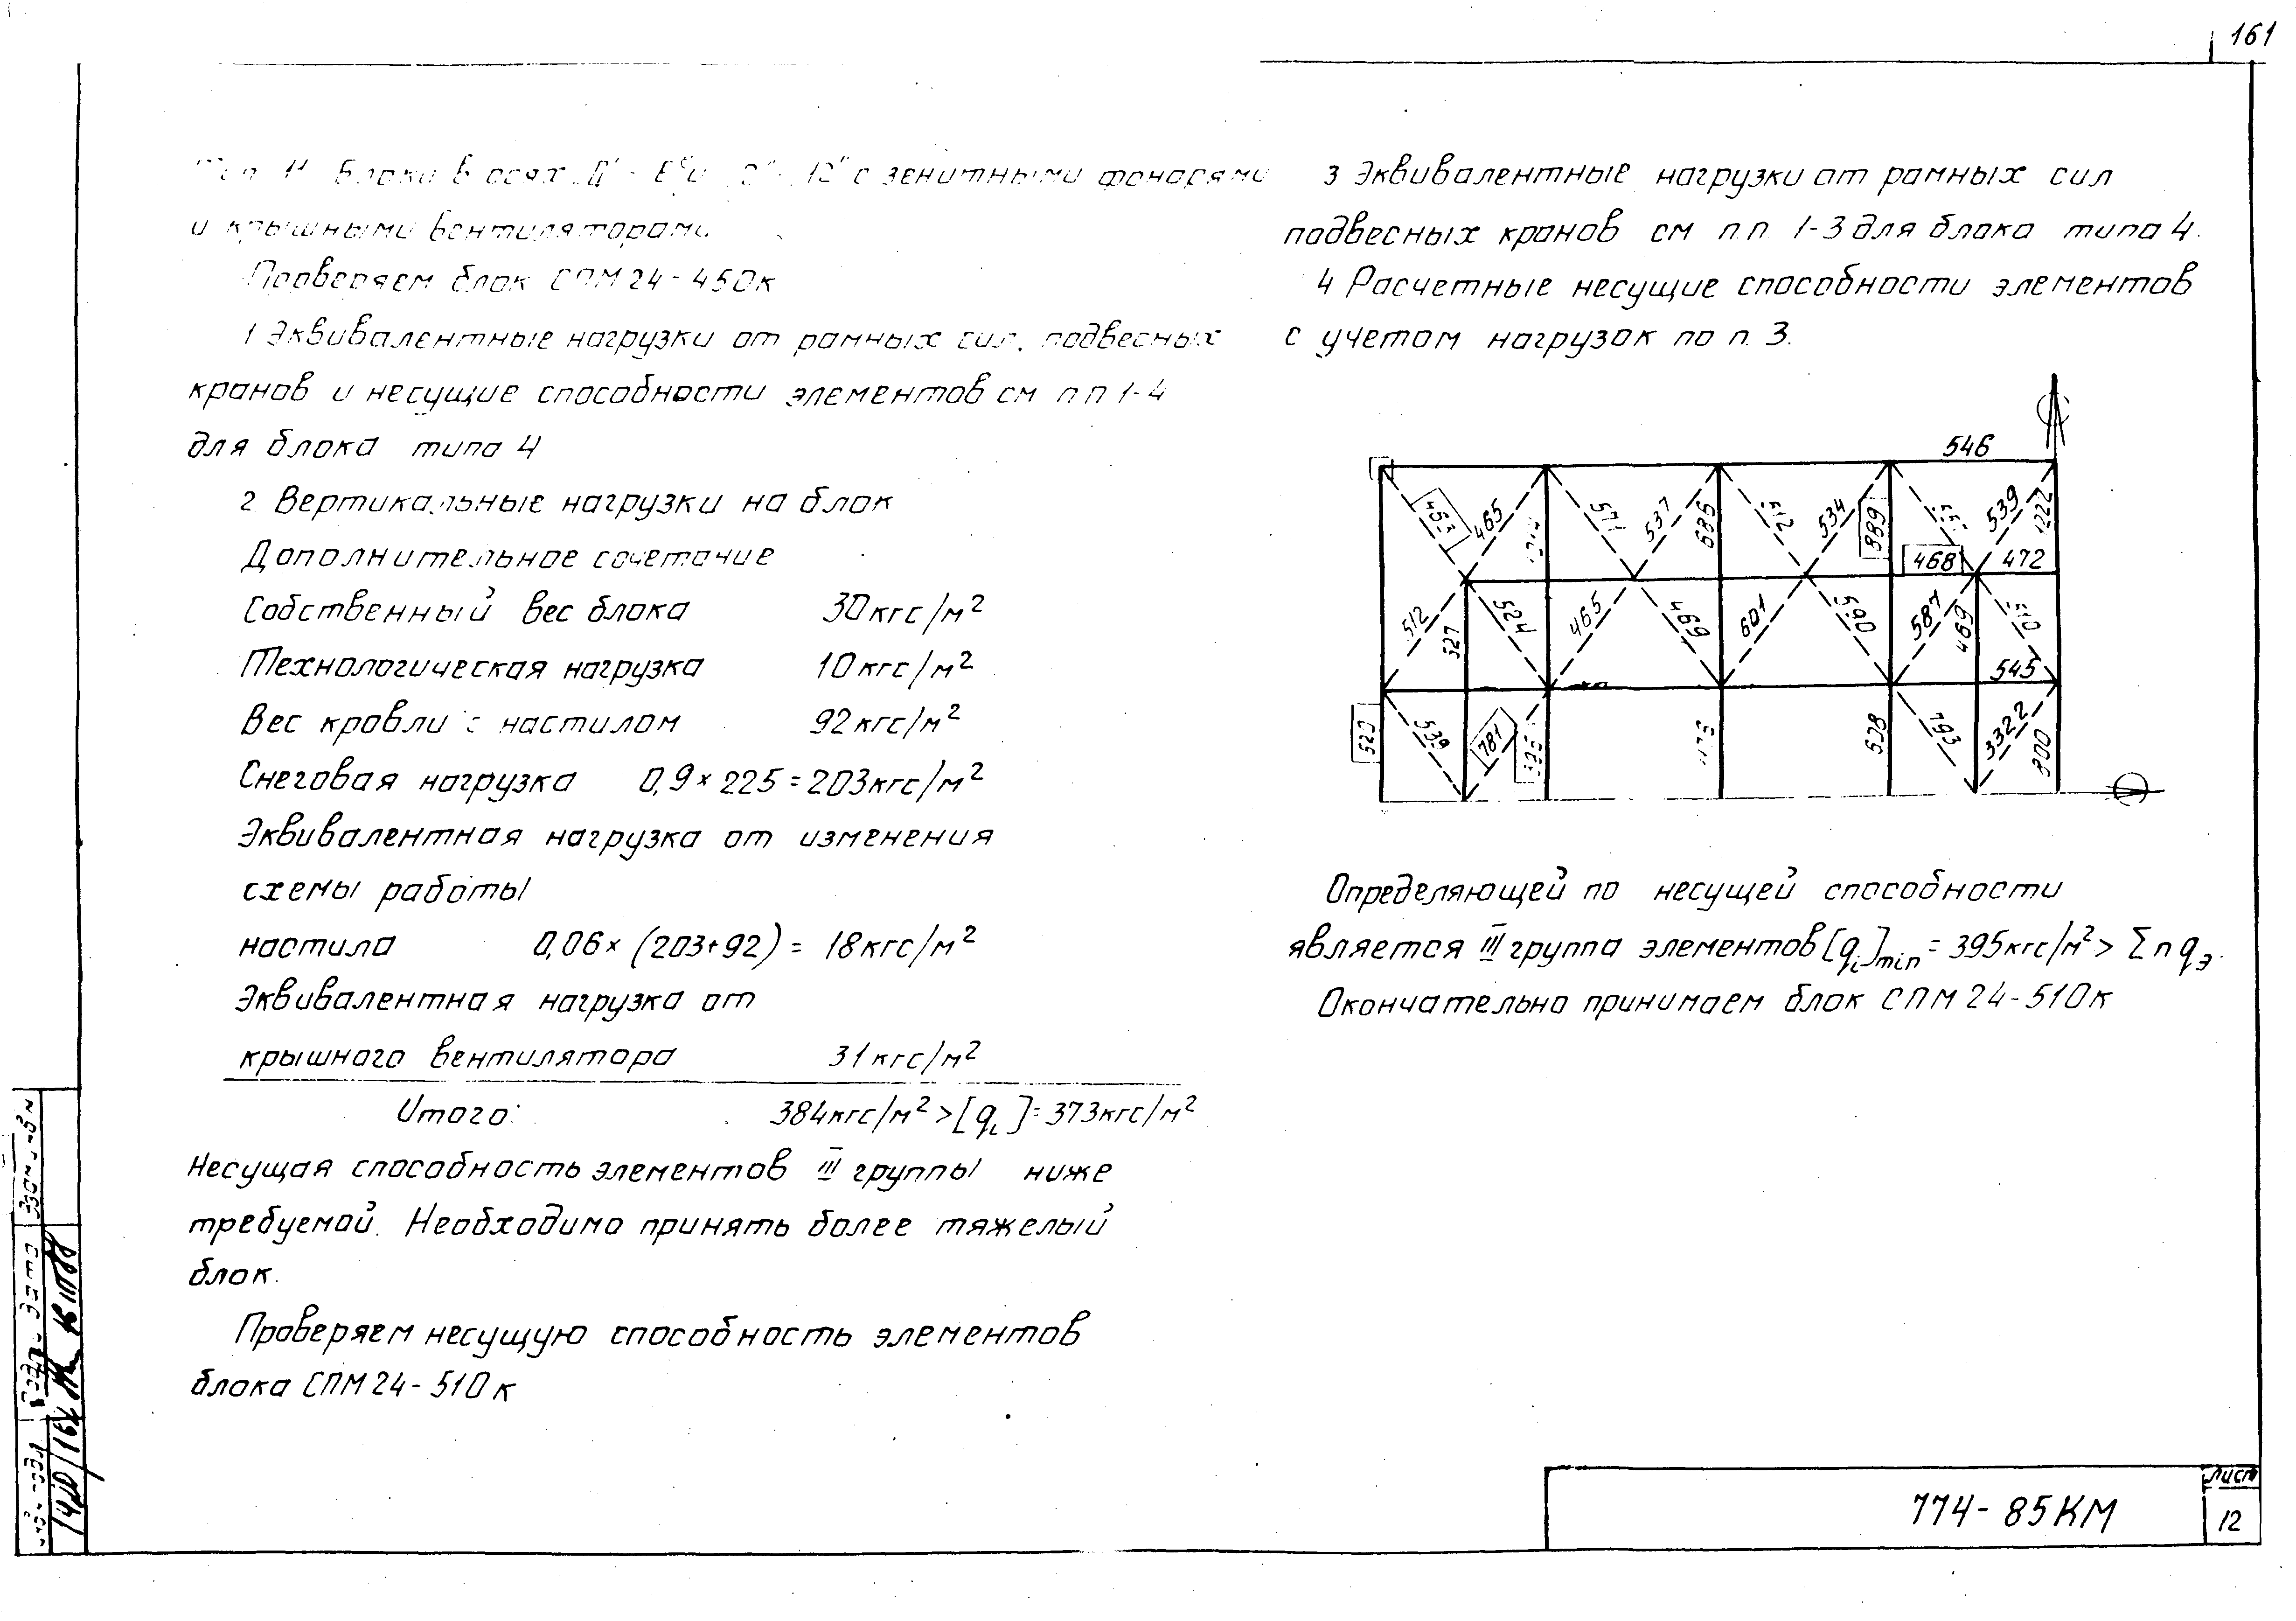 161
Блоки в осях с зенитными фонарями
и крышными вентиляторами
Проверяем блок СПМ 24-450к
1 Эквивалентные нагрузки от рамных сил, подвесных
кранов и несущие способности элементов см п п 1-4
для блока типа 4
2. Вертикальные нагрузки на блок
Дополнительное сочетание
Собственный вес блока 30 кгс/м²
Технологическая нагрузка 10 кгс/м²
Вес кровли с настилом 92 кгс/м²
Снеговая нагрузка 0,9 × 225 = 203 кгс/м²
Эквивалентная нагрузка от изменения
схемы работы
настила 0,06 × (203+92) = 18 кгс/м²
Эквивалентная нагрузка от
крышного вентилятора 31 кгс/м²
Итого: 384 кгс/м² > [qi] = 373 кгс/м²
Несущая способность элементов III группы ниже
требуемой. Необходимо принять более тяжелый
блок.
Проверяем несущую способность элементов
блока СПМ 24-510к
3 Эквивалентные нагрузки от рамных сил
подвесных кранов см п.п. 1-3 для блока типа 4.
4 Расчетные несущие способности элементов
с учетом нагрузок по п. 3.
546
453 465 571 537 686 512 534 889 539 1222
468 472
512 527 524 465 469 601 590 587 469 510
545
539 781 508 793 3322 800
Определяющей по несущей способности
является III группа элементов [qi]min = 395 кгс/м² > Σ n qэ.
Окончательно принимаем блок СПМ 24-510к
774-85КМ
Лист
12